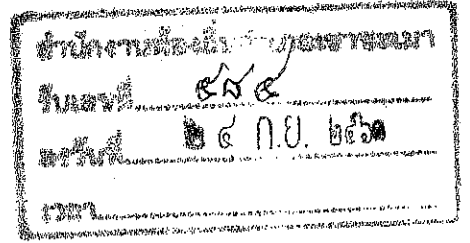 สำนักงานท้องถิ่น
รับเลขที่ ๕๘๕
ลงวันที่ ๒๔ ก.ย. ๒๕๖๑
เวลา